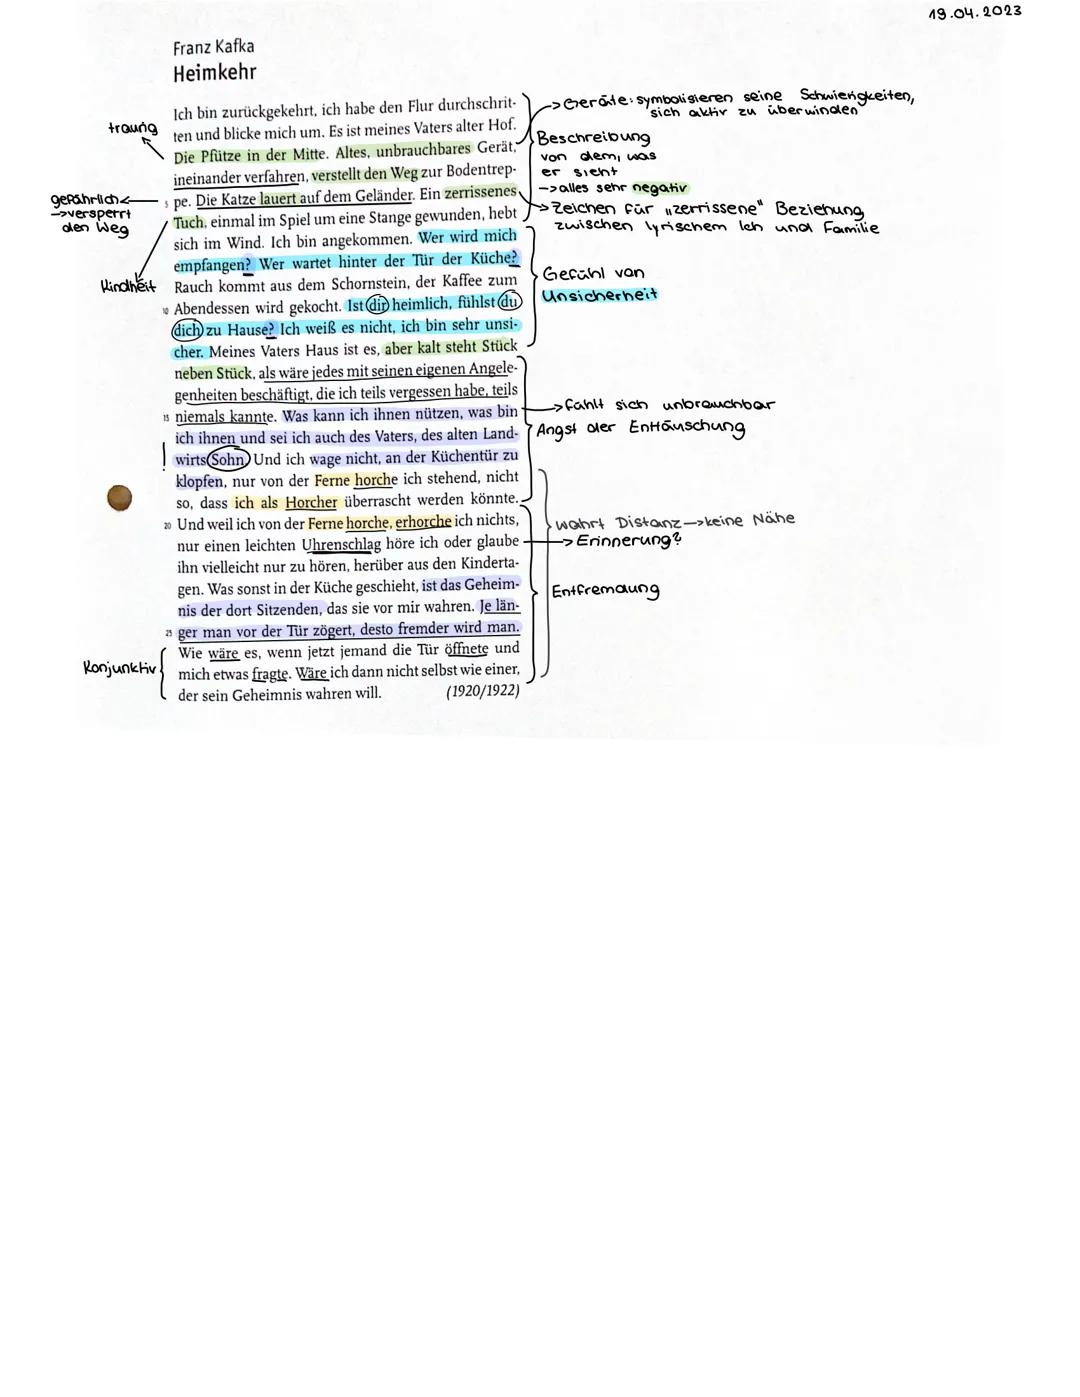 19.04.2023
Franz Kafka
Heimkehr
Ich bin zurückgekehrt, ich habe den Flur durchschrit-
ten und blicke mich um. Es ist meines Vaters alter Hof.
Die Pfütze in der Mitte. Altes, unbrauchbares Gerät,
ineinander verfahren, verstellt den Weg zur Bodentrep-
5 pe. Die Katze lauert auf dem Geländer. Ein zerrissenes
Tuch, einmal im Spiel um eine Stange gewunden, hebt
sich im Wind. Ich bin angekommen. Wer wird mich
empfangen? Wer wartet hinter der Tür der Küche?
Rauch kommt aus dem Schornstein, der Kaffee zum
10 Abendessen wird gekocht. Ist dir heimlich, fühlst du
dich zu Hause? Ich weiß es nicht, ich bin sehr unsi-
cher. Meines Vaters Haus ist es, aber kalt steht Stück
neben Stück, als wäre jedes mit seinen eigenen Angele-
genheiten beschäftigt, die ich teils vergessen habe, teils
15 niemals kannte. Was kann ich ihnen nützen, was bin
ich ihnen und sei ich auch des Vaters, des alten Land-
! wirts Sohn. Und ich wage nicht, an der Küchentür zu
klopfen, nur von der Ferne horche ich stehend, nicht
so, dass ich als Horcher überrascht werden könnte.
20 Und weil ich von der Ferne horche, erhorche ich nichts,
nur einen leichten Uhrenschlag höre ich oder glaube
ihn vielleicht nur zu hören, herüber aus den Kinderta-
gen. Was sonst in der Küche geschieht, ist das Geheim-
nis der dort Sitzenden, das sie vor mir wahren. Je län-
25 ger man vor der Tür zögert, desto fremder wird man.
Wie wäre es, wenn jetzt jemand die Tür öffnete und
mich etwas fragte. Wäre ich dann nicht selbst wie einer,
der sein Geheimnis wahren will. (1920/1922)
traurig
gefährlich
->versperrt
den Weg
Kindheit
Konjunktiv
->Geräte: symbolisieren seine Schwierigkeiten,
sich aktiv zu überwinden
Beschreibung
von dem, was
er sieht
->alles sehr negativ
->Zeichen für „zerrissene" Beziehung
zwischen lyrischem Ich und Familie
Gefühl von
Unsicherheit
->fühlt sich unbrauchbar
Angst der Enttäuschung
wahrt Distanz->keine Nähe
->Erinnerung?
Entfremdung